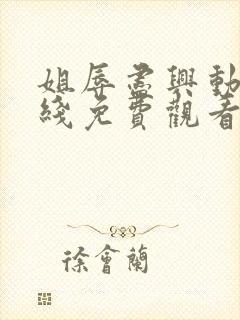 姐辱盡興動
綫免費觀看
徐會蘭